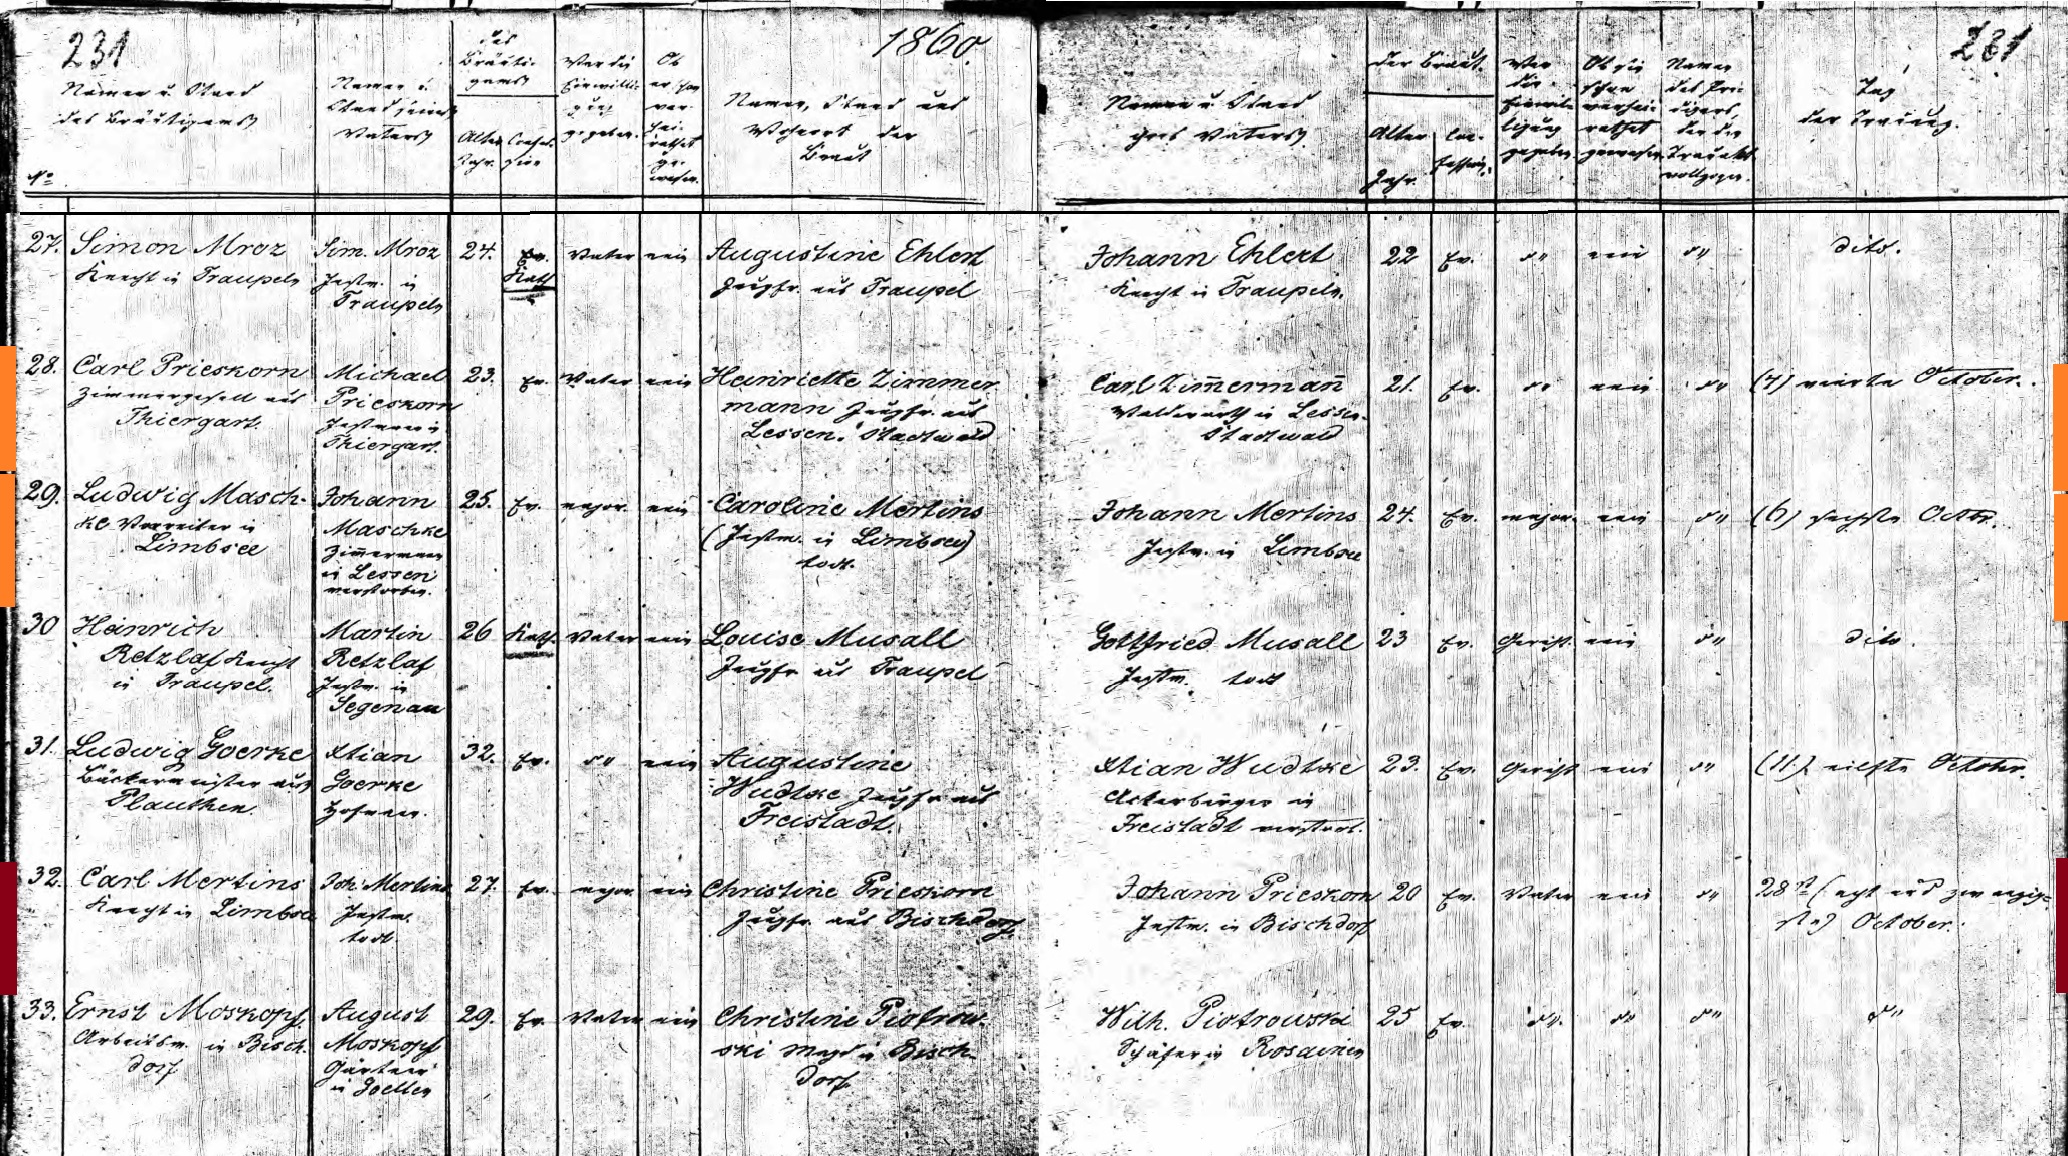 231
1860.
281
Namen u. Stand
des Bräutigams
Namen u.
Stand seines
Vaters
des
Bräuti-
gams
Alter Confes-
Jahr. sion
Wer die
Einwilli-
gung
gegeben.
Ob
er schon
ver-
hei-
rathet
ge-
wesen.
Namen, Stand und
Wohnort der
Braut
Namen u. Stand
ihres Vaters
der Braut.
Alter Con-
Jahr. fession.
Wer
die
Einwil-
ligung
gegeben.
Ob sie
schon
verhei-
rathet
gewesen.
Namen
des Pre-
digers,
der die
Trauung
vollzogen.
Tag
der Trauung.
No
27. Simon Mroz
Knecht in Traupeln
Sim. Mroz
Instm. in
Traupeln
24. Ev. Vater nein
Kath
Augustine Ehlert
Jungfr. aus Traupel
Johann Ehlert
Knecht in Traupeln.
22 Ev. do nein do dito.
28. Carl Prieskorn
Zimmergesell aus
Thiergart.
Michael
Prieskorn
Instmann in
Thiergart.
23. Ev. Vater nein
Henriette Zimmer
mann Jungfr. aus
Lessen. Stadtwald
Carl Zim̄erman̄
Waldwarth in Lessen-
Stadtwald
21. Ev. do nein do (4) vierte October.
29. Ludwig Masch-
ke Vorreiter in
Limbsee
Johann
Maschke
Zimmermann
in Lessen
verstorben.
25. Ev. major. nein
Caroline Mertins
(Instm. in Limbsee)
todt.
Johann Mertins
Instm. in Limbsee
24. Ev. major. nein do (6) sechste Octbr.
30 Heinrich
Retzlaf Knecht
in Traupel.
Martin
Retzlaf
Instm. in
Segenau
26 Kath. Vater nein
Louise Musall
Jungfr aus Traupel
Gottfried Musall
Instm. todt
23 Ev. Gericht. nein do dito.
31. Ludwig Goerke
Bäckermeister aus
Plauthen.
Xtian
Goerke
32. Ev. do nein
Augustine
Wudtke Jungfr aus
Freistadt.
Xtian Wudtke
Ackerbürger in
Freistadt verstorb.
23. Ev. Gericht nein do (11) eilfte October.
32. Carl Mertins
Knecht in Limbsee
Joh. Mertins
Instm.
todt.
27. Ev. major. nein
Christine Prieskorn
Jungfr aus Bischdorf.
Johann Prieskorn
Instm. in Bischdorf
20 Ev. Vater nein do 28st (acht und zwanzig-
ste) October.
33. Ernst Moskopf.
Arbeitsm. in Bisch.
dorf
August
Moskopf
Gärtner
in Goellen
29. Ev. Vater nein
Christine Piotrow-
ski Magd in Bisch-
dorf
Wilh. Piotrowski
Schäfer in Rosainen
25 Ev. do do do do